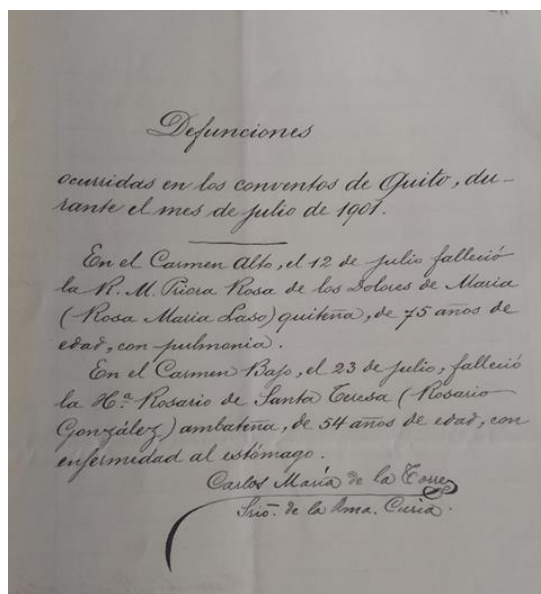 Defunciones
ocurridas en los conventos de Quito, du-
rante el mes de julio de 1901.
En el Carmen Alto, el 12 de julio falleció
la R. M. Priora Rosa de los Dolores de Maria
(Rosa Maria Laso) quiteña, de 75 años de
edad, con pulmonia.
En el Carmen Bajo, el 23 de julio, falleció
la H.ª Rosario de Santa Teresa (Rosario
González) ambateña, de 54 años de edad, con
enfermedad al estómago.
Carlos María de la Torre
Srio. de la Ama. Curia.